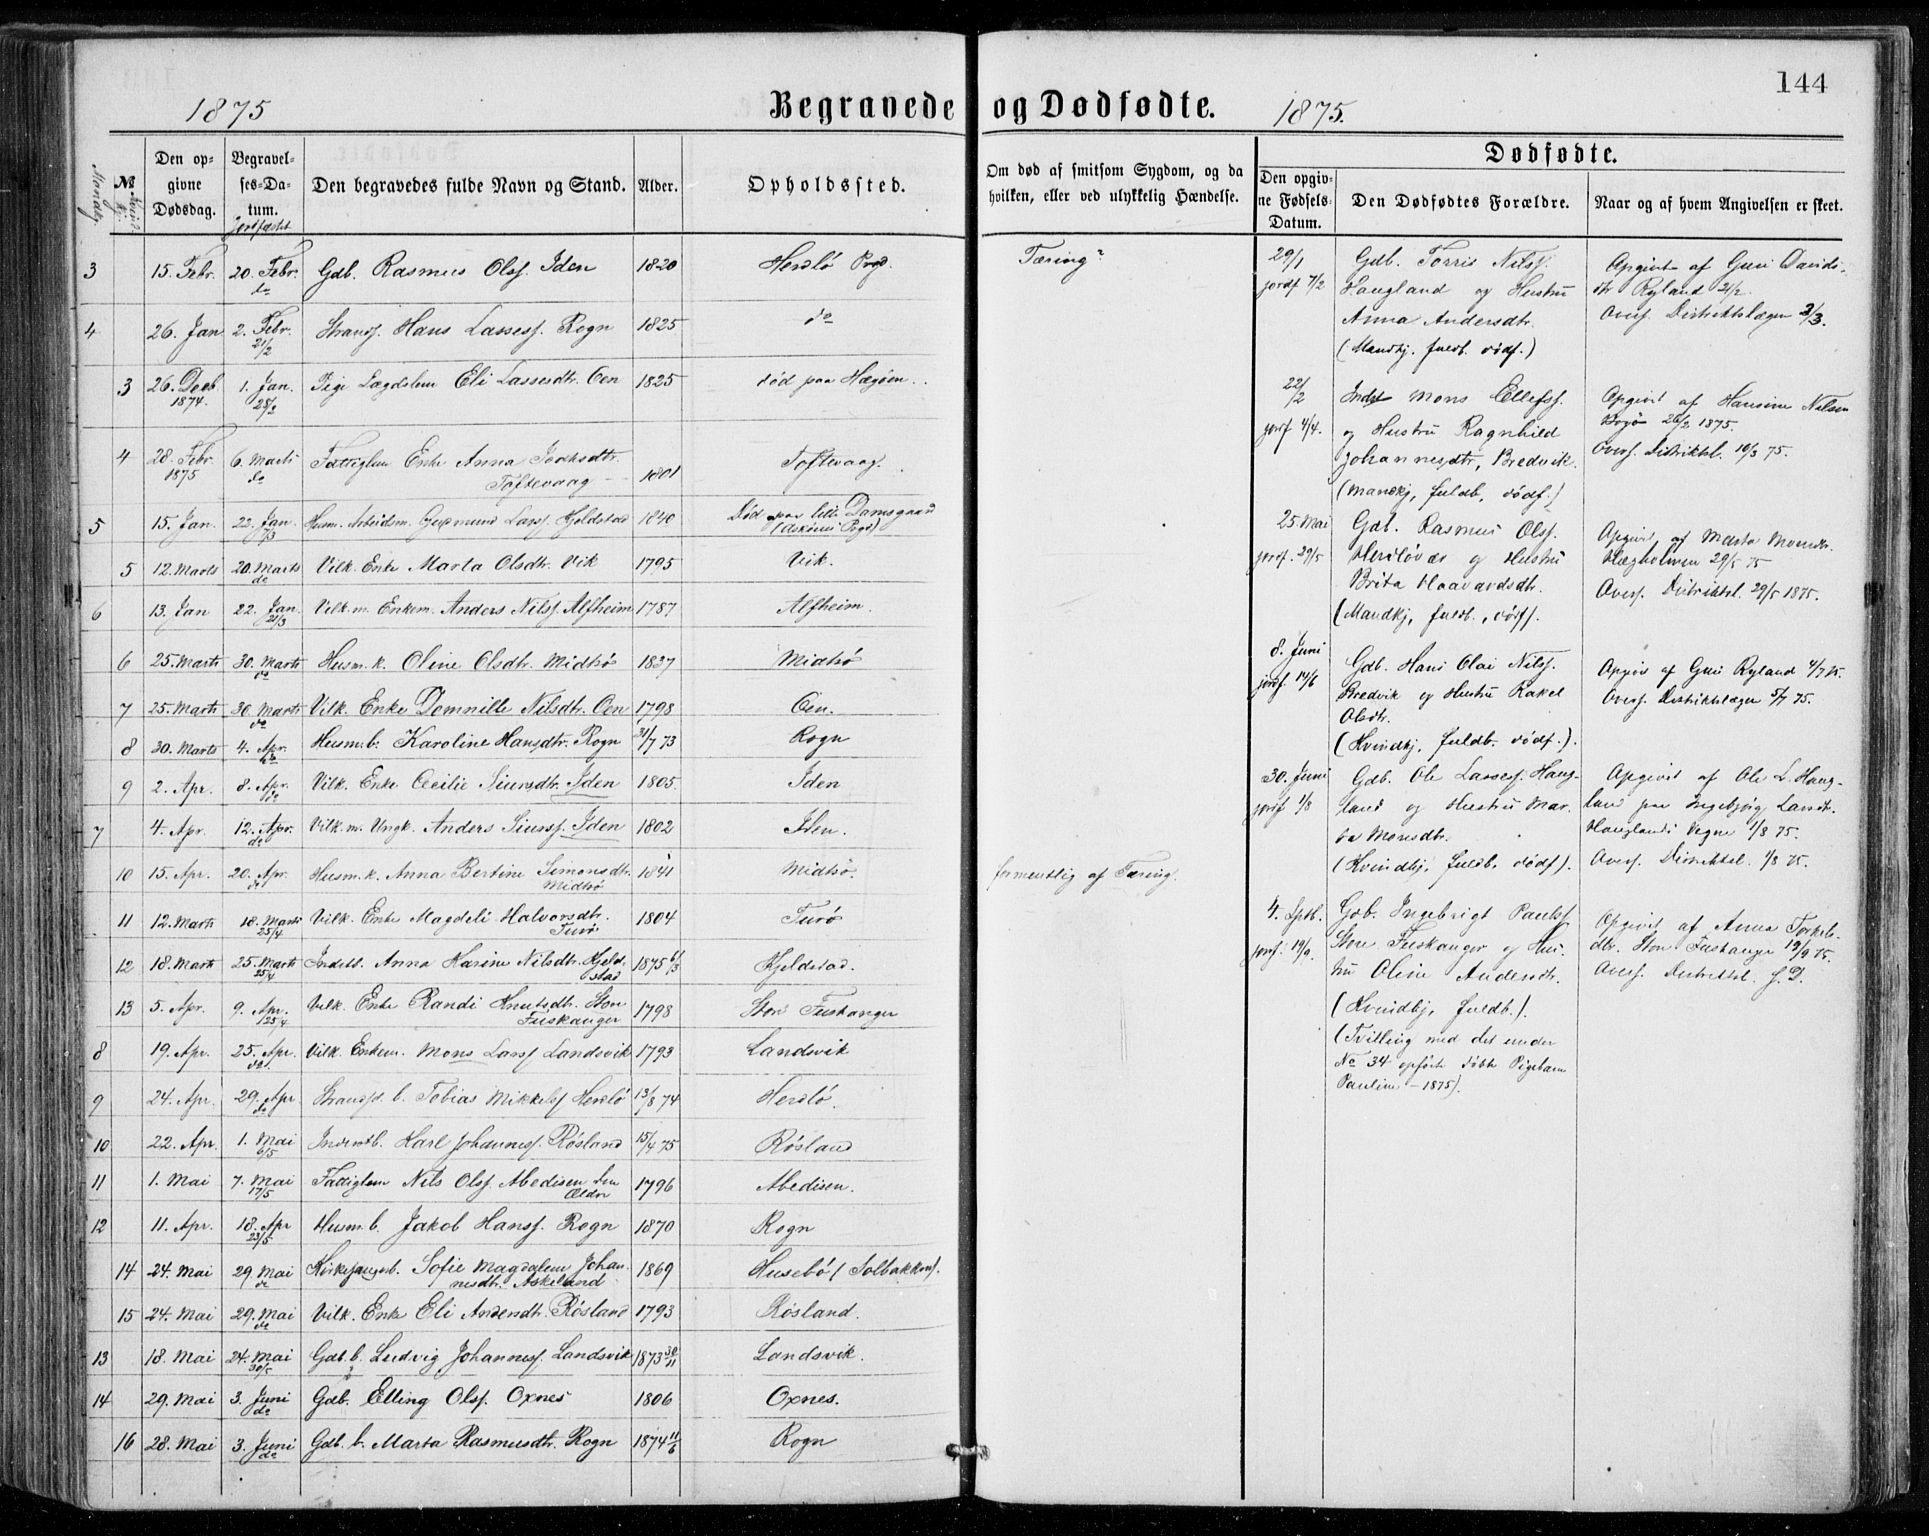 144
1875 Begravede og Dødfødte. 1875.
Dødfødte.
Mandkj. № Kvindekj. Den opgivne Dødsdag. Begravelses-Datum. Jordfæstet Den begravedes fulde Navn og Stand. Alder. Opholdssted.
Om død af smitsom Sygdom, og da hvilken, eller ved ulykkelig Hændelse.
Den opgivne Fødsels-Datum. Den Dødfødtes Forældre. Naar og af hvem Angivelsen er skeet.
3 15. Febr. 20. Febr. do Gdb. Rasmus Olsf. Iden 1820 Herdlö Prgd. Tæring?
4 26. Jan 2. Febr. 21/2 Strands. Hans Lassesf. Rogn 1825 do
3 26. Decb 1874. 1. Jan. 28/2 Pige Lægdslem Eli Lassesdtr. Oen 1825 død paa Hægöen.
4 28. Febr. 1875 6. Marts do Fattiglem Enke Anna Isaksdtr. Töftevaag 1801 Toftevaag.
5 15. Jan. 22. Jan. 7/3 Husm. Arbeidsm. Gudmund Larsf. Hjeldstad 1840 Død paa lille Damsgaard (Askøens Prgd)
5 12. Marts 20. Marts do Vilk. Enke Marta Olsdtr. Vik 1795 Vik.
6 13. Jan 22. Jan 21/3 Vilk. m. Enkem. Anders Nilsf. Alfheim 1787 Alfheim.
6 25. Marts 30. Marts do Husm. k. Oline Olsdtr. Midthö 1837 Midthö
7 25. Marts 30. Marts do Vilk. Enke Domnille Nilsdtr. Oen 1798 Oen.
8 30. Marts 4. Apr. Husm. b. Karoline Hansdtr. Rogn 31/7 73 Rogn
9 2. Apr. 8. Apr. do Vilk. Enke Cecilie Siursdtr. Iden 1805. Iden
7 4. Apr. 12. Apr. do Vilk. m. Ungk. Anders Siursf. Iden 1802 Iden.
10 15. Apr. 20. Apr. do Husm. k. Anna Bertine Simonsdtr. Midthö 1841 Midthö. formentlig af Tæring.
11 12. Marts 18. Marts 25/4 Vilk. Enke Magdeli Halvorsdtr. Turö 1804 Turö
12 18. Marts 25. Marts 25/4 Inderst. Anna Karine Nilsdtr. Hjeldstad 1875 6/3 Hjeldstad.
13 5. Apr. 9. Apr. 25/4 Vilk. Enke Randi Knutsdtr. Store Fuskanger 1798 Store Fuskanger
8 19. Apr. 25. Apr. do Vilk. Enkem. Mons Larsf Landsvik 1793 Landsvik
9 24. Apr. 29. Apr do Strands. b. Tobias Mikkelsf Herdlö 13/8 74 Herdlö.
10 22. Apr. 1. Mai 6/5 Inderstb. Karl Johannesf. Røsland 15/4 75 Røsland
11 1. Mai 7. Mai 17/5 Fattiglem Nils Olsf. Abedisen den Ældre 1796 Abedisen.
12 11. Apr. 18. Apr 23/5 Husm. b. Jakob Hansf. Rogn 1870 Rogn
14 24. Mai 29. Mai do Kirkesangerb. Sofie Magdalene Johannesdtr. Askeland 1869 Husebö (Solbakken).
15 24. Mai 29. Mai do Vilk. Enke Eli Andersdtr. Røsland 1793 Røsland.
13 18. Mai 24. Mai 30/5 Gdb. b. Ludvig Johannesf. Landsvik 1873 30/11 Landsvik.
14 29. Mai 3. Juni do Gdb. Elling Olsf. Oxnes 1806 Oxnes.
16 28. Mai 3. Juni do Gdb. b. Marta Rasmusdtr. Rogn 1874 11/6 Rogn
29/1 Gdb. Torris Nilsf. Opgivet af Guri Davids-
jordf 7/2 Haugland og Hustru dtr Ryland 21/2.
Anna Andersdtr. Overf. Distriktslægen 3/3.
(Mandkj. fuldb. dödf.)
22/2 Inderst Mons Ellefsf. Opgivet af Hansine Nilsen
jordf 4/4. og Hustru Ragnhild Bogö 26/2 1875.
Johannesdtr, Bredvik. Overf. Distriktsl. 10/3 75.
(Mandkj, fuldb, dödf.)
25. Mai Gdb. Rasmus Olsf. Opgivet af Marta Monsdtr.
jordf. 29/5 Herdlövær og Hustru Hægholmen 29/5 75
Brita Haavardsdtr. Overf. Distriktsl. 29/5 1875.
(Mandkj, fuldb., dödf).
8. Juni Gdb. Hans Olai Nilsf. Opgivet af Guri Ryland 4/7 75.
jordf. 14/6 Bredvik og Hustru Rakel Overf. Distriktslægen 5/7 75.
Olsdtr.
(Kvindkj, fuldb. dödf.).
30. Juni Gdb. Ole Lassesf. Haug- Opgivet af Ole L. Haug-
jordf 1/8 land og Hustru Mar- land paa Ingebjørg Larsdtr.
ta Monsdtr. Hauglands Vegne 1/8 75.
(Kvindkj, fuldb, dödf). Overf. Distriktsl. 1/8 75.
4. Sptb. Gdb. Ingebrigt Paulsf Opgivet af Anna Torkels-
jordf. 19/9. Store Fuskanger og Hus- dtr. Store Fuskanger 19/9 75.
tru Oline Andersdtr. Overf. Distriktsl. s. D.
(Kvindkj, fuldb.).
(Tvilling med det under
No 34 opförte döbte Pigebarn
Pauline – 1875).